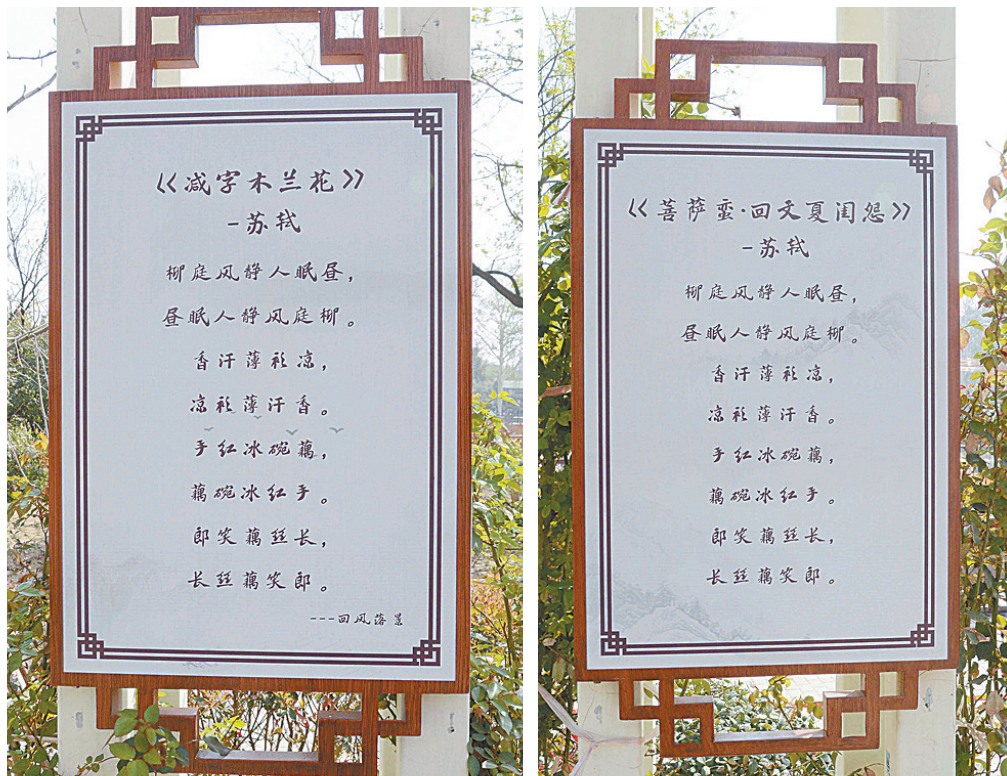 《减字木兰花》
-苏轼
柳庭风静人眠昼，
昼眠人静风庭柳。
香汗薄衫凉，
凉衫薄汗香。
手红冰碗藕，
藕碗冰红手。
郎笑藕丝长，
长丝藕笑郎。
---回风落景
《菩萨蛮·回文夏闺怨》
-苏轼
柳庭风静人眠昼，
昼眠人静风庭柳。
香汗薄衫凉，
凉衫薄汗香。
手红冰碗藕，
藕碗冰红手。
郎笑藕丝长，
长丝藕笑郎。